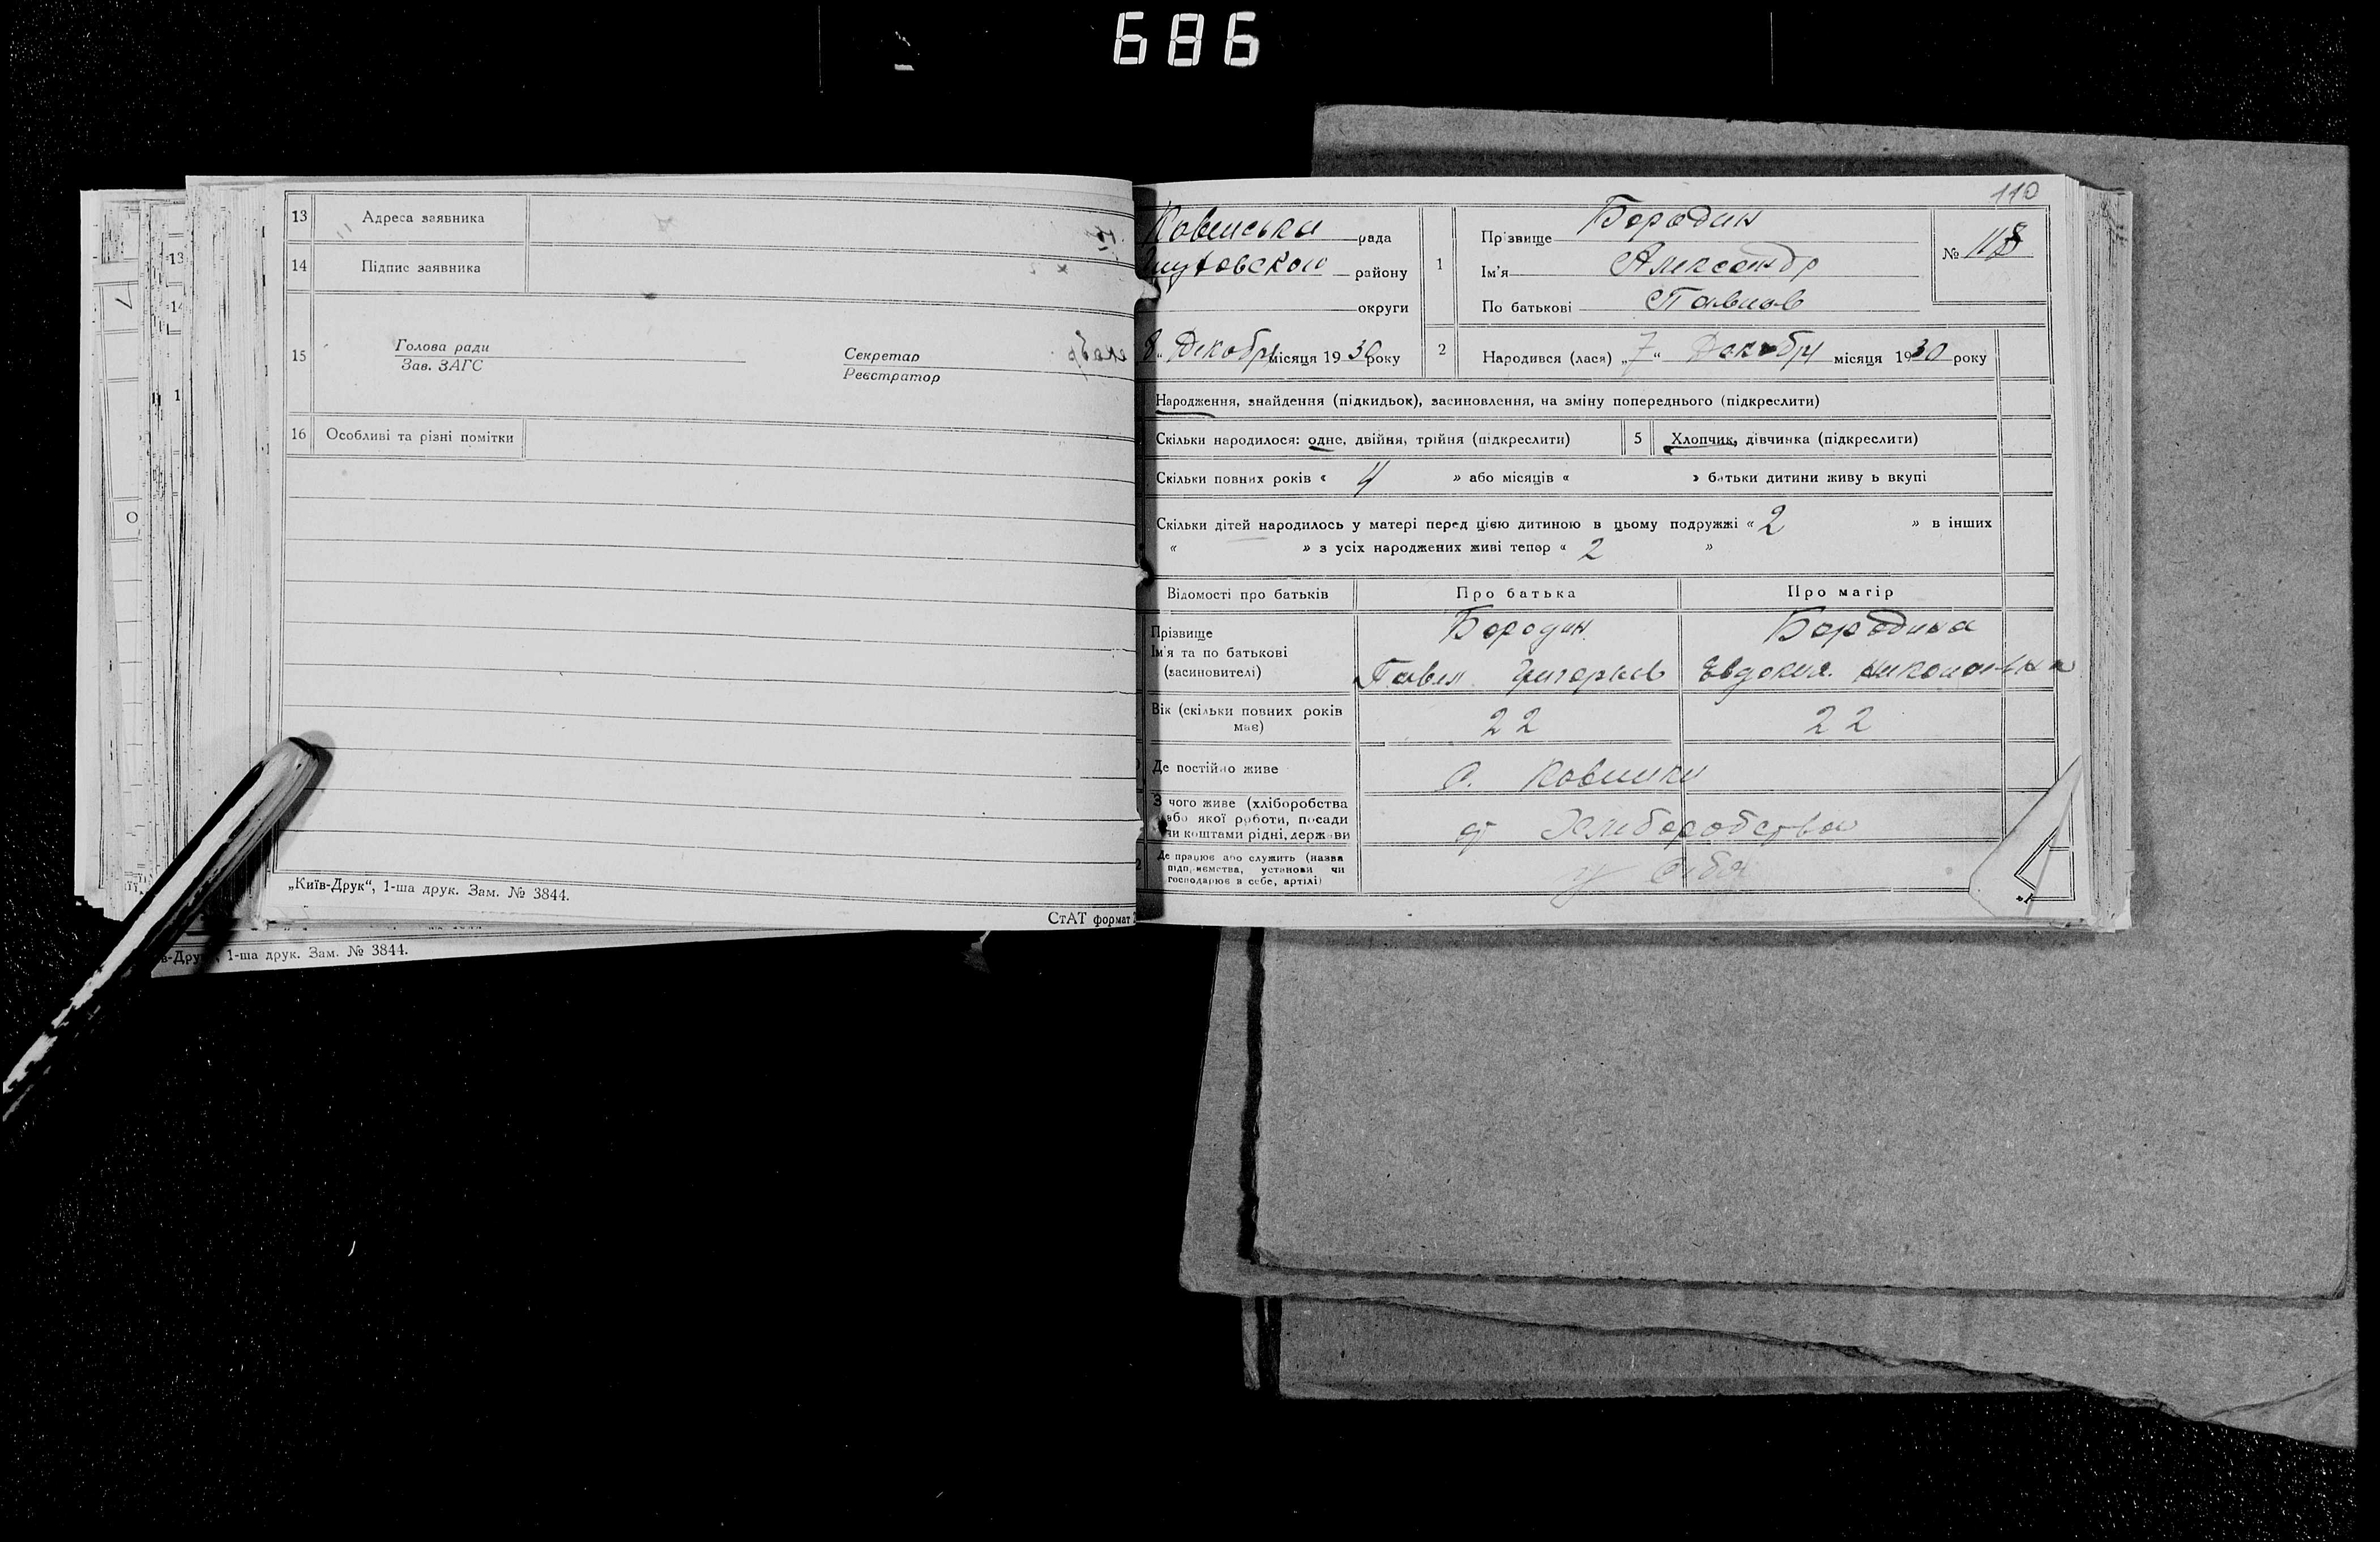 686
13 Адреса заявника
14 Підпис заявника
15 Голова ради
Зав. ЗАГС
Секретар
Реєстратор
16 Особливі та різні помітки
„Київ-Друк“, 1-ша друк. Зам. № 3844.
СтАТ формат
1-ша друк. Зам. № 3844.
110
рада
району
округи
8 „ Декабры місяця 1930 року
1 Прізвище Бородин
Ім'я Александр
По батькові Павлов
№ 118
2 Народився (лася) „7“ Декабры місяця 1930 року
Народження, знайдення (підкидьок), засиновлення, на зміну попереднього (підкреслити)
Скільки народилося: одне, двійня, трійня (підкреслити)
5 Хлопчик, дівчинка (підкреслити)
Скільки повних років « 4 » або місяців « » батьки дитини живу ь вкупі
Скільки дітей народилось у матері перед цією дитиною в цьому подружжі « 2 » в інших
« » з усіх народжених живі тепер « 2 »
Відомості про батьків
Про батька
Про матір
Прізвище
Ім'я та по батькові
(засиновителі)
Бородин
Павел Григорьев
Бородина
Евдокия Николаевна
Вік (скільки повних років
має)
22
22
Де постійно живе
с. Ковшики
З чого живе (хліборобства
або якої роботи, посади
чи коштами рідні, держави
от Хлеборобства
Де працює або служить (назва
підприємства, установи чи
господарює в себе, артілі)
у себя